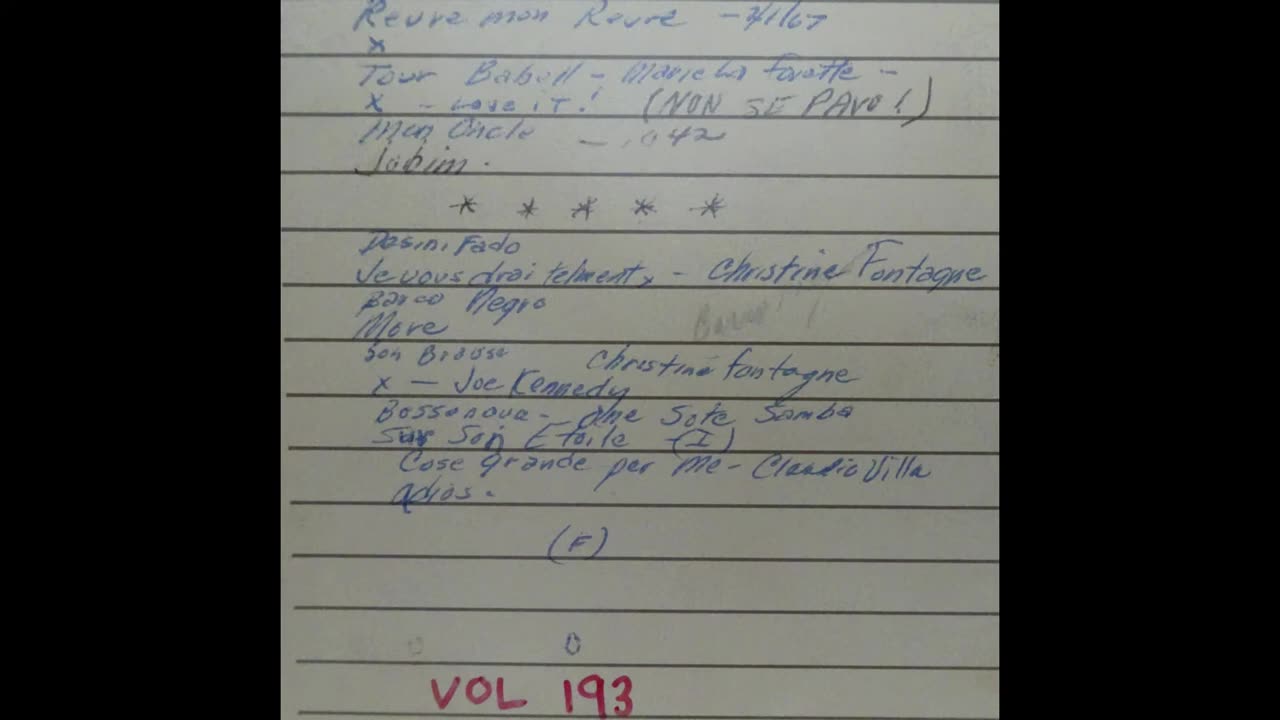 Reura mon Reure - 2/1/67
x
Tour Babell - Maricha Fovatte -
x - Love iT! (NON SE PAVO!)
Mon Oncle - .042
Jobim.
* * * * *
Desinifado
Je vous drai telment x - Christine Fontagne
Barco Negro
More
Son Brause Christine fontagne
x - Joe Kennedy
Bossanova - One Sote Samba
Sur Son Etoile (I)
Cose Grande per Me - Claudio Villa
adios.
(F)
0 0
VOL 193